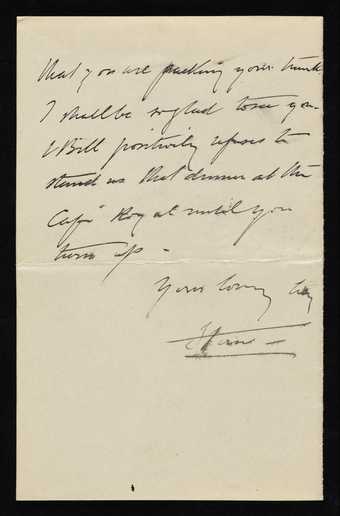 that you are packing your trunk.
I shall be so glad to see you.
& Bill positively refuses to
stand us that dinner at the
Café Royal until you
turn up -
Yours